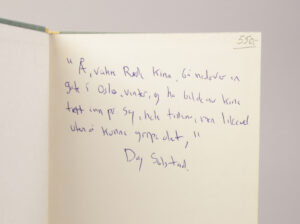 550,-
" Å, være Rød Kina. Gå nedover en
gate i Oslo, vinter, og ha bildene av Kina
inn på seg, hele tiden, men likevel
uten å kunne gripe det, "
Dag Solstad.